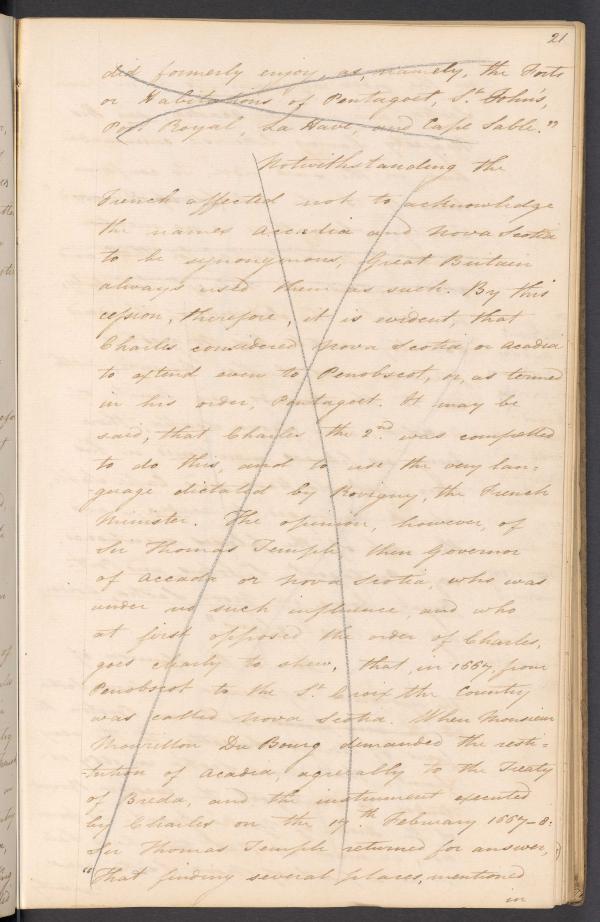 21
did formerly enjoy, as, namely, the Forts
or Habitations of Pentagoet, St. John's,
Port Royal, La Have, and Cape Sable."
Notwithstanding the
French affected not to acknowledge
the names Accadia and Nova Scotia
to be synonymous, Great Britain
always used them as such. By this
cession, therefore, it is evident, that
Charles considered Nova Scotia or Acadia
to extend even to Penobscot, or, as termed
in his order, Pentagoet. It may be
said, that Charles the 2nd. was compelled
to do this, and to use the very lan-
guage dictated by Rovigny, the French
minister. The opinion, however, of
Sir Thomas Temple, then Governor
of Accada or Nova Scotia, who was
under no such influence, and who
at first opposed the order of Charles,
goes clearly to shew, that, in 1667, from
Penobscot to the St. Croix the Country
was called Nova Scotia. When Monsieur
Mourillon Du Bourg demanded the resti-
tution of Acadia, agreeably to the Treaty
of Breda, and the instrument executed
by Charles on the 17th February 1667-8:
Sir Thomas Temple returned for answer,
"That finding several places, mentioned
in